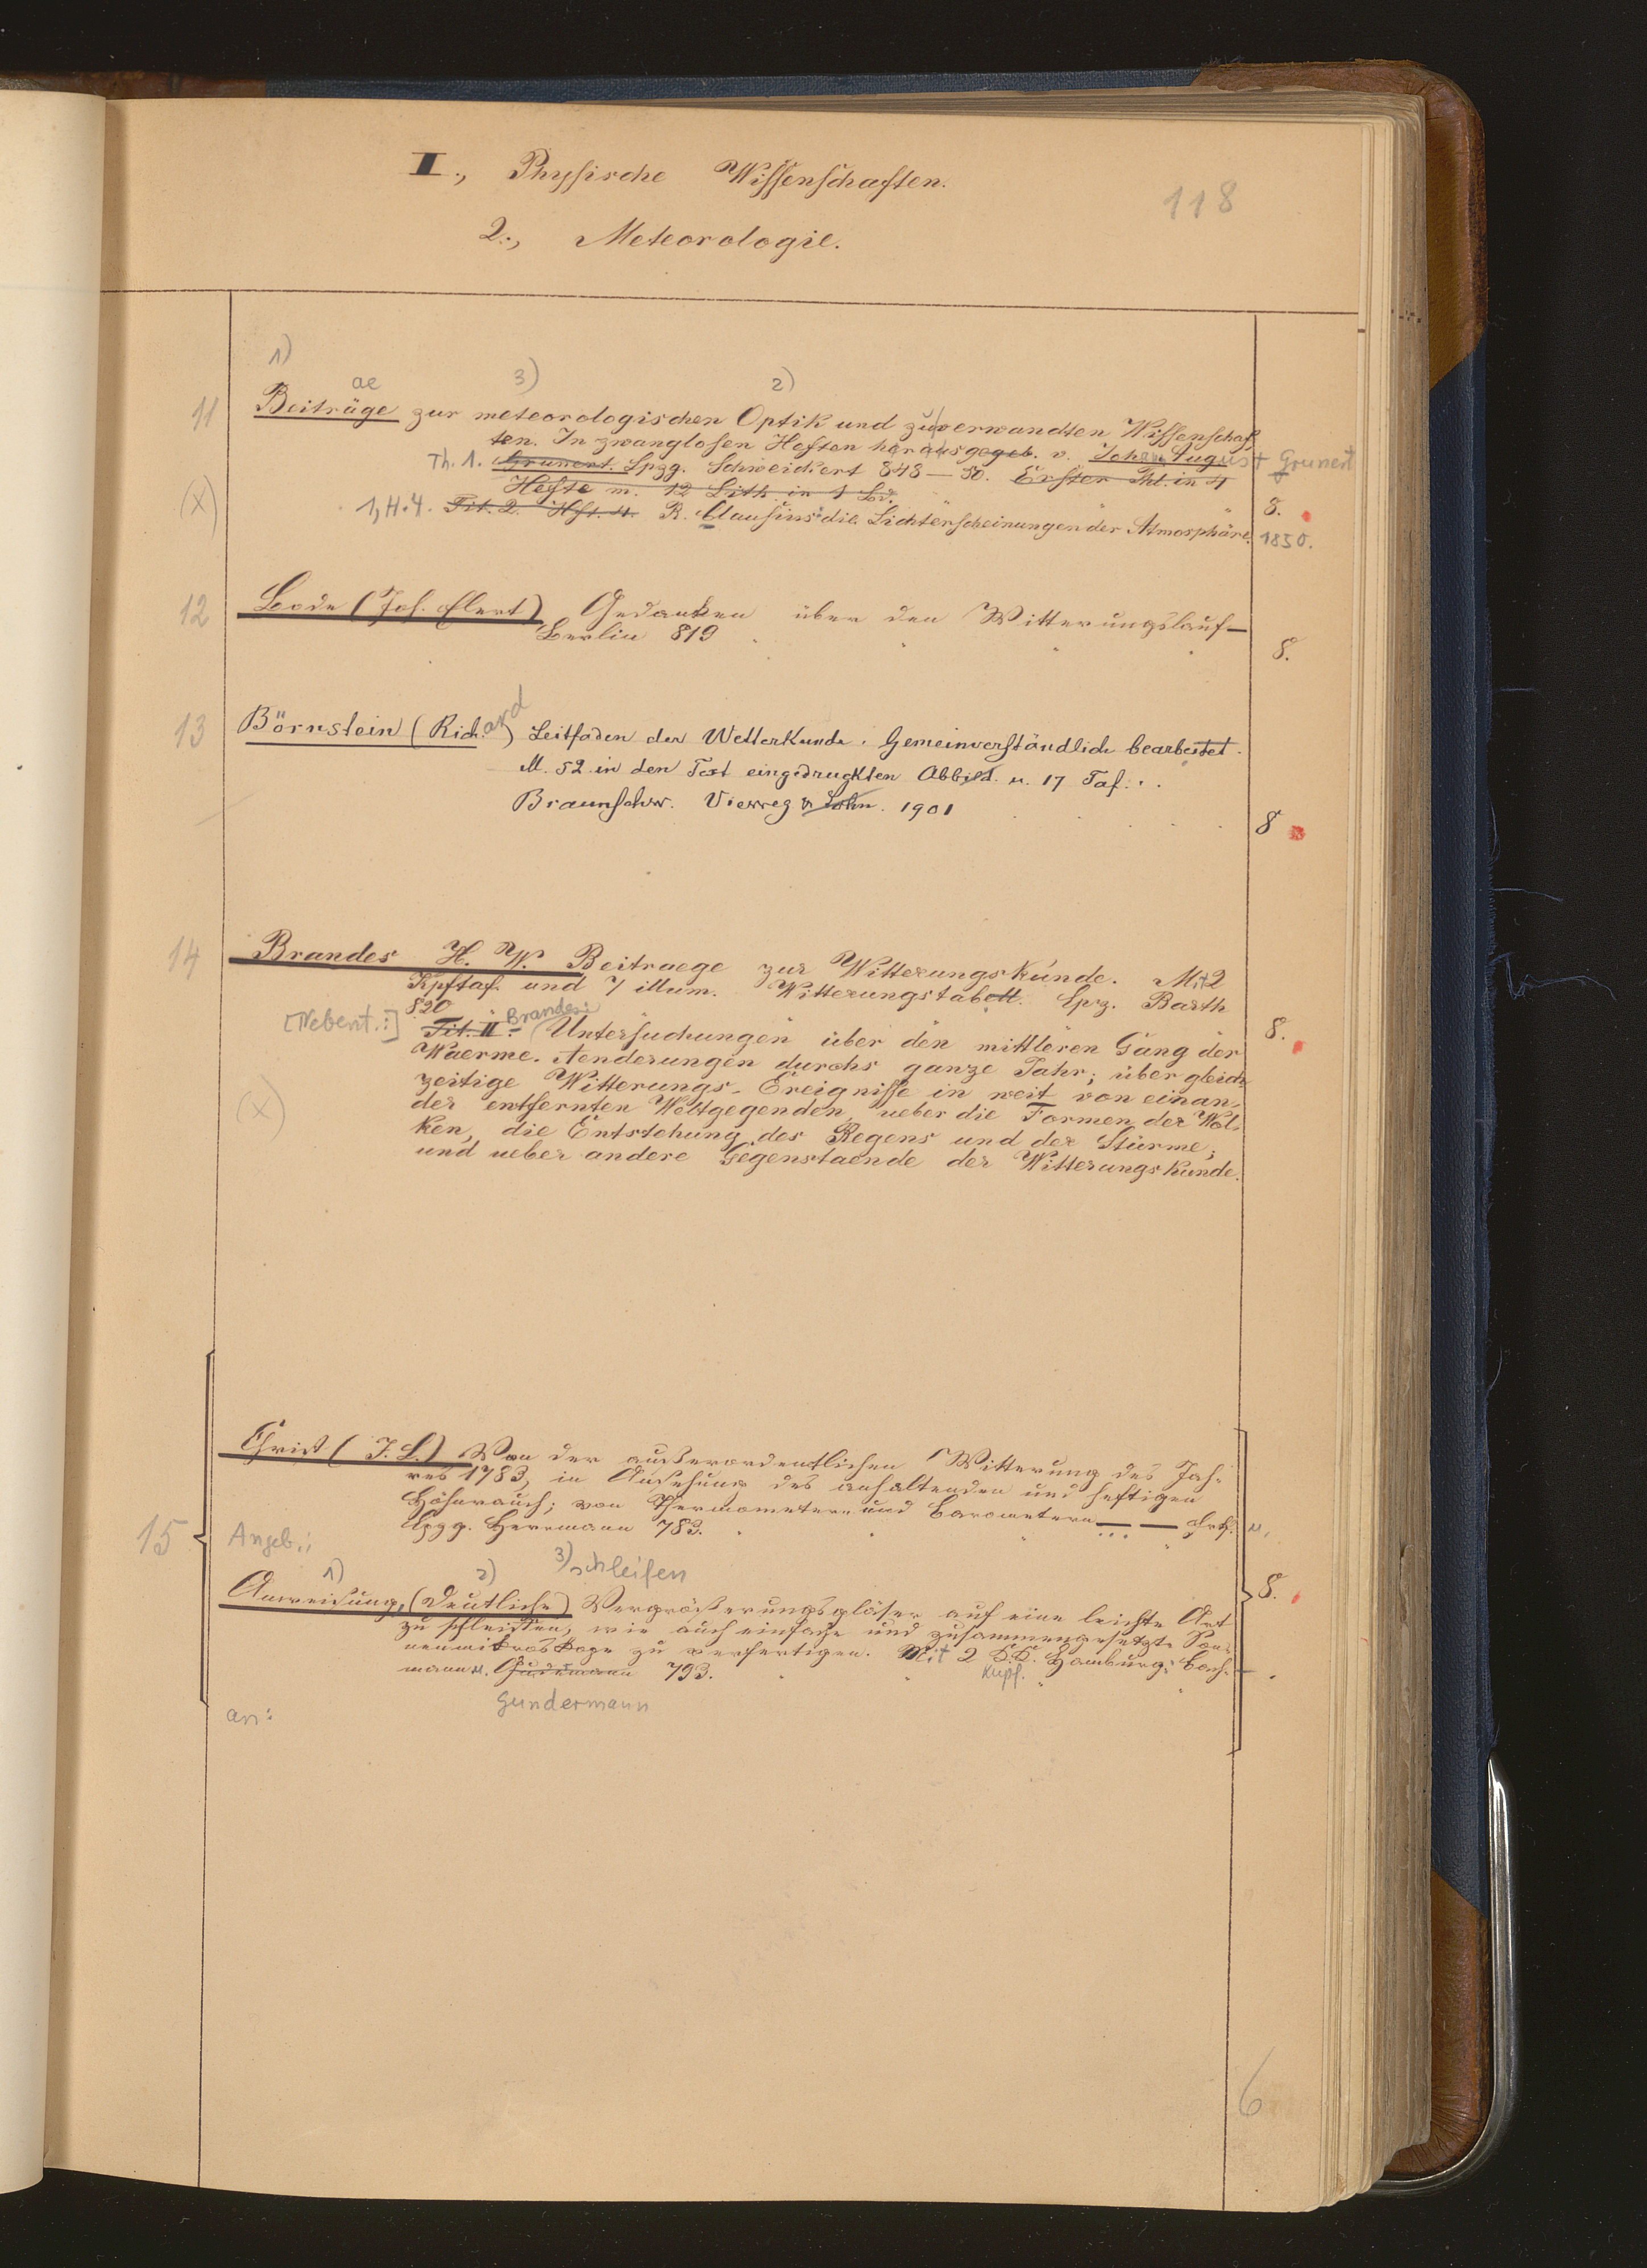 II., Physische Wissenschaften.
118
2., Meteorologie.
1)
ae 3) 2)
11 Beiträge zur meteorologischen Optik und zu verwandten Wissenschaf
ten. In zwanglosen Heften herausgegeb. v. Johann August Grunert
Th. 1. Grunert. Lpzg. Schweickert 848–50. Erster Thl. in 4
Hefte m. 12 Lith. in 1 Bd. 8.
(X) 1, H. 4. Tit. 2. Hft. 4. R. Clausius: die Lichterscheinungen der Atmosphäre. 1850.
12 Bode (Joh. Elert) Gedanken über den Witterungslauf –
Berlin 819 8.
13 Börnstein (Rich.ard) Leitfaden der Wetterkunde. Gemeinverständlich bearbeitet.
M. 52 in den Text eingedruckten Abbild. u. 17 Taf.
Braunschw. Vieweg & Sohn. 1901 8
14 Brandes H. W. Beitraege zur Witterungskunde. Mit 2
Kpftaf. und 7 illum. Witterungstabell. Lpz. Barth
820 8.
[Nebent.:] Tit. II. Brandes: Untersuchungen über den mittleren Gang der
Waerme-Aenderungen durchs ganze Jahr; über gleich
zeitige Witterungs-Ereignisse in weit von einan-
(X) der entfernten Weltgegenden, ueber die Formen der Wol-
ken, die Entstehung des Regens und der Stürme;
und ueber andere Gegenstaende der Witterungskunde.
Christ (J. L.) Von der außerordentlichen Witterung des Jah-
res 1783, in Ansehung des anhaltenden und heftigen
Höhenrauch; von Thermometern und Barometern — —
15 Angeb.: Lpzg. Herrmann 783. u.
1) 2) 3) schleifen
Anweisung, (Deutliche) Vergrößerungsgläser auf eine leichte Art 8.
zu schleiffen, wie auch einfache und zusammengesetzte Son-
nenmikroskope zu verfertigen. Mit 2 K.K. Hamburg. Bach-
mann u. Gundermann 793. Kupf.
an: Gundermann
6